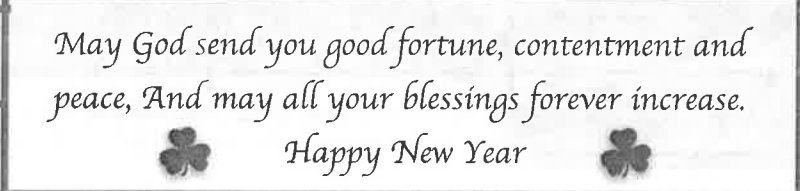 May God send you good fortune, contentment and
peace, And may all your blessings forever increase.
Happy New Year